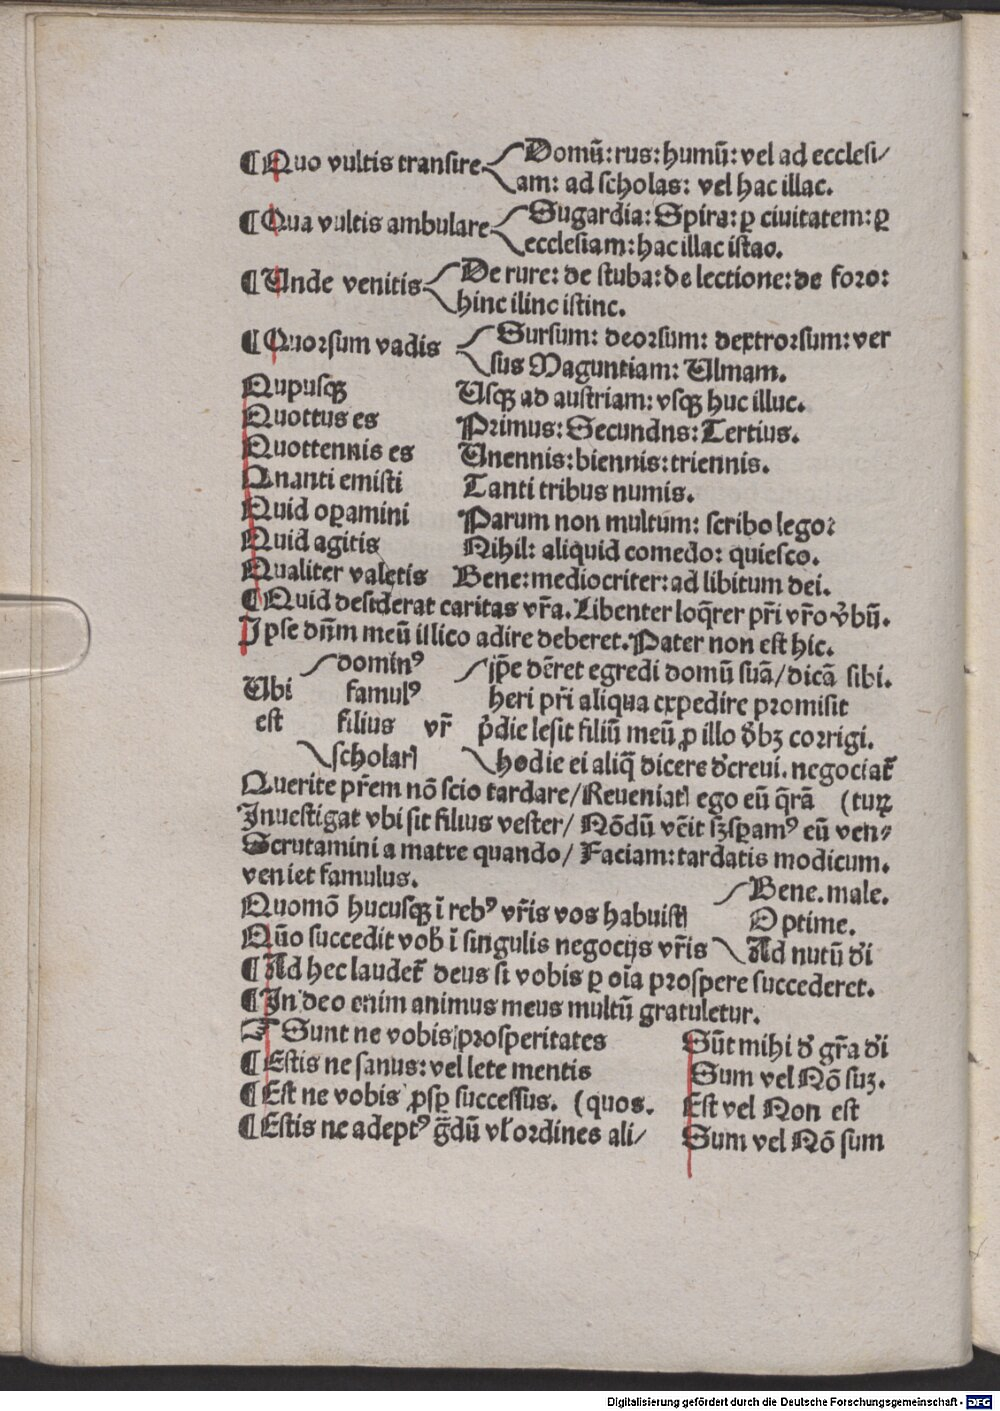 ¶ Quo vultis transire Domū: rus: humū: vel ad ecclesi/
am: ad scholas: vel hac illac.
¶ Qua vultis ambulare Sugardia: Spira: ꝑ ciuitatem: ꝑ
ecclesiam: hac illac istac.
¶ Unde venitis De rure: de stuba: de lectione: de foro:
hinc ilinc istinc.
¶ Quorsum vadis Sursum: deorsum: dextrorsum: ver
sus Maguntiam: Ulmam.
Qupusqꝫ Usqꝫ ad austriam: vsqꝫ huc illuc.
Quottus es Primus: Secundns: Tertius.
Quottennis es Unennis: biennis: triennis.
Qnanti emisti Tanti tribus numis.
Quid oꝑamini Parum non multum: scribo lego:
Quid agitis Nihil: aliquid comedo: quiesco.
Qualiter valetis Bene: mediocriter: ad libitum dei.
¶ Quid desiderat caritas vr̄a. Libenter loq̄rer pr̄i vr̄o v̓bū.
Ipse dn̄m meū illico adire deberet. Pater non est hic.
dominꝰ ip̄e dēret egredi domū suā/ dicā sibi.
Ubi famulꝰ heri pr̄i aliqua expedire promisit
est filius vr̄ p̓die lesit filiū meū ꝓ illo d̓bꝫ corrigi.
scholarꝭ hodie ei aliq̄ dicere d̓creui. negociat᷑
Querite pr̄em nō scio tardare/ Reueniatꝭ ego eū q̄rā (turꝫ
Inuestigat vbi sit filius vester/ Nōdū vēit sꝫ sꝑamꝰ eū ven⸗
Scrutamini a matre quando/ Faciam: tardatis modicum.
veniet famulus. Bene. male.
Quomō hucusqꝫ ī rebꝰ vr̄is vos habuistꝭ Optime.
Qūo succedit vob̓ ī singulis negocijs vr̄is Ad nutū d̓i
¶ Ad hec laudet᷑ deus si vobis ꝑ oīa prospere succederet.
¶ In deo enim animus meus multū gratuletur.
¶ Sunt ne vobis prosperitates Sūt mihi d̓ gr̄a d̓i
¶ Estis ne sanus: vel lete mentis Sum vel Nō suꝫ.
¶ Est ne vobis ꝓsꝑ successus. (quos. Est vel Non est
¶ Estis ne adeptꝰ ḡdū vl̓ ordines ali/ Sum vel Nō sum
Digitalisierung gefördert durch die Deutsche Forschungsgemeinschaft - DFG